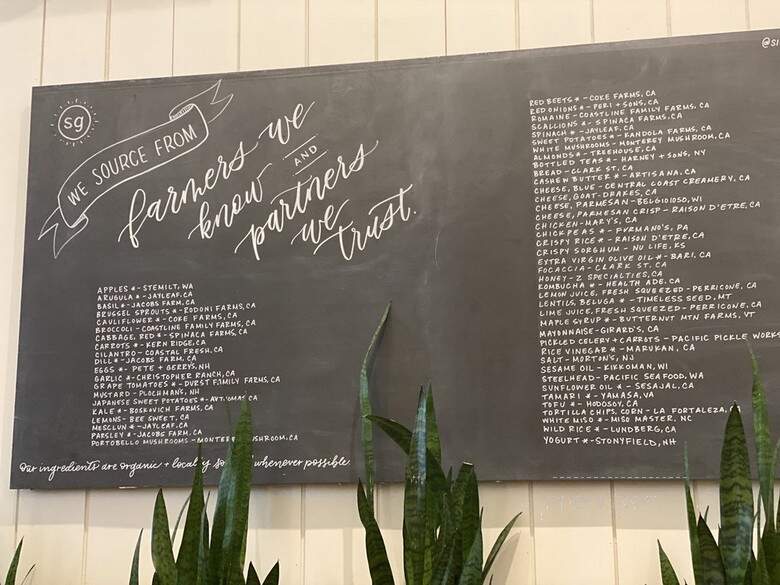 sg
WE SOURCE FROM
farmers we
know AND
partners
we
trust.
APPLES * - STEMILT, WA
ARUGULA * - JAYLEAF, CA
BASIL * - JACOBS FARM, CA
BRUSSEL SPROUTS * - RODONI FARMS, CA
CAULIFLOWER * - COKE FARMS, CA
BROCCOLI - COASTLINE FAMILY FARMS, CA
CABBAGE, RED * - SPINACA FARMS, CA
CARROTS * - KERN RIDGE, CA
CILANTRO - COASTAL FRESH, CA
DILL * - JACOBS FARM, CA
EGGS * - PETE + GERRYS, NH
GARLIC * - CHRISTOPHER RANCH, CA
GRAPE TOMATOES * - DURST FAMILY FARMS, CA
MUSTARD - PLOCHMANS, NH
JAPANESE SWEET POTATOES * - CA
KALE * - BOSKOVICH FARMS, CA
LEMONS - BEE SWEET, CA
MESCLUN * - JAYLEAF, CA
PARSLEY * - JACOBS FARM, CA
PORTOBELLO MUSHROOMS - MUSHROOM, CA
Our ingredients are organic + whenever possible
RED BEETS * - COKE FARMS, CA
RED ONIONS * - PERI + SONS, CA
ROMAINE - COASTLINE FAMILY FARMS, CA
SCALLIONS * - SPINACA FARMS, CA
SPINACH * - JAYLEAF, CA
SWEET POTATOES * - FARMS, CA
WHITE MUSHROOMS - MONTEREY MUSHROOM, CA
ALMONDS * - TREEHOUSE, CA
BOTTLED TEAS * - HARNEY + SONS, NY
BREAD - CLARK ST, CA
CASHEW BUTTER * - ARTISANA, CA
CHEESE, BLUE - CENTRAL COAST CREAMERY, CA
CHEESE, GOAT - DRAKES, CA
CHEESE, PARMESAN - BELGIOIOSO, WI
CHEESE, PARMESAN CRISP - RAISON D'ETRE, CA
CHICKEN - MARY'S, CA
CHICKPEAS * - FURMANO'S, PA
CRISPY RICE * - RAISON D'ETRE, CA
CRISPY SORGHUM - NU LIFE, KS
EXTRA VIRGIN OLIVE OIL * - BARI, CA
FOCACCIA - CLARK ST, CA
HONEY - Z SPECIALTIES, CA
KOMBUCHA * - HEALTH ADE, CA
LEMON JUICE, FRESH SQUEEZED - PERRICONE, CA
LENTILS, BELUGA * - TIMELESS SEED, MT
LIME JUICE, FRESH SQUEEZED - PERRICONE, CA
MAPLE SYRUP * - BUTTERNUT MTN FARMS, VT
MAYONNAISE - GIRARD'S, CA
PICKLED CELERY + CARROTS - PACIFIC PICKLE WORKS
RICE VINEGAR * - MARUKAN, CA
SALT - MORTON'S, NJ
SESAME OIL - KIKKOMAN, WI
STEELHEAD - PACIFIC SEAFOOD, WA
SUNFLOWER OIL * - SESAJAL, CA
TAMARI * - YAMASA, VA
TOFU * - HODOSOY, CA
TORTILLA CHIPS, CORN - LA FORTALEZA,
WHITE MISO * - MISO MASTER, NC
WILD RICE * - LUNDBERG, CA
YOGURT * - STONYFIELD, NH